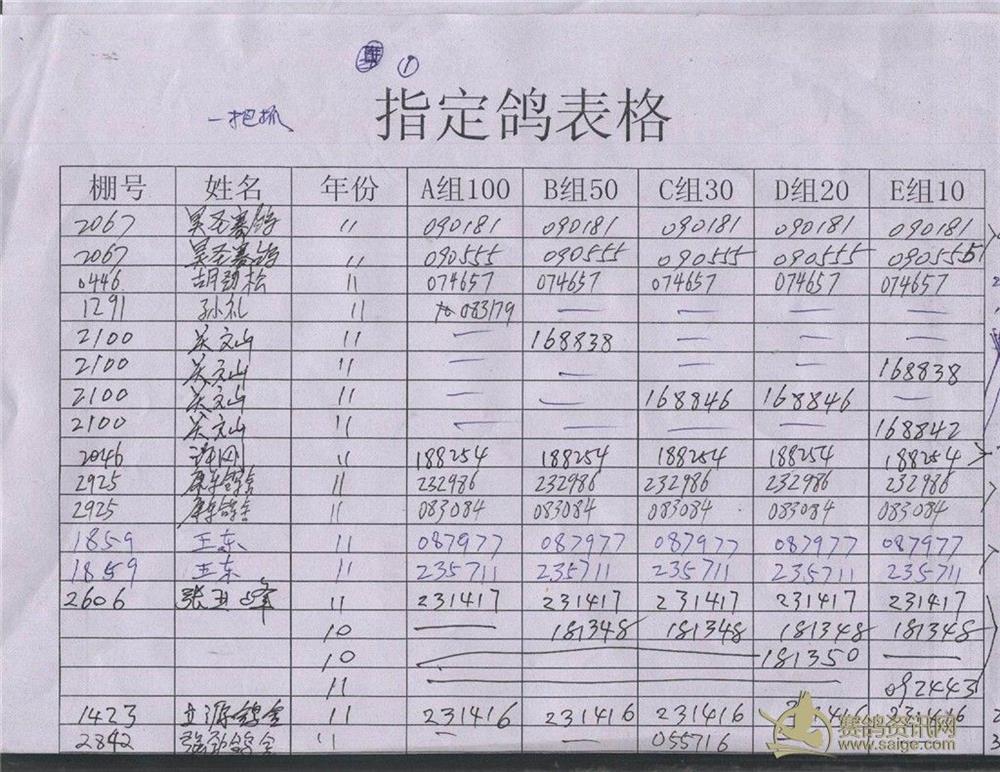 ①
一把抓
指定鸽表格
棚号 姓名 年份 A组100 B组50 C组30 D组20 E组10
2067 昊圣赛鸽 11 090181 090181 090181 090181 090181
2067 昊圣赛鸽 11 090555 090555 090555 090555 090555
0446 胡劲松 11 074657 074657 074657 074657 074657
1291 孙礼 11 083179 — — — —
2100 关文山 11 — 168838 — — —
2100 关文山 11 — — — — 168838
2100 关文山 11 — — 168846 168846 —
2100 关文山 11 — — — — 168842
2046 11 188254 188254 188254 188254 188254
2925 康乐鸽舍 11 232986 232986 232986 232986 232986
2925 康乐鸽舍 11 083084 083084 083084 083084 083084
1859 王东 11 087977 087977 087977 087977 087977
1859 王东 11 235711 235711 235711 235711 235711
2606 张卫峰 11 231417 231417 231417 231417 231417
10 — 181348 181348 181348 181348
10 — 181350 —
11 — 092443
1423 立源鸽舍 11 231416 231416 231416 231416 231416
2842 强劲鸽舍 11 — — 055716 — —
赛鸽资讯网
www.saige.com